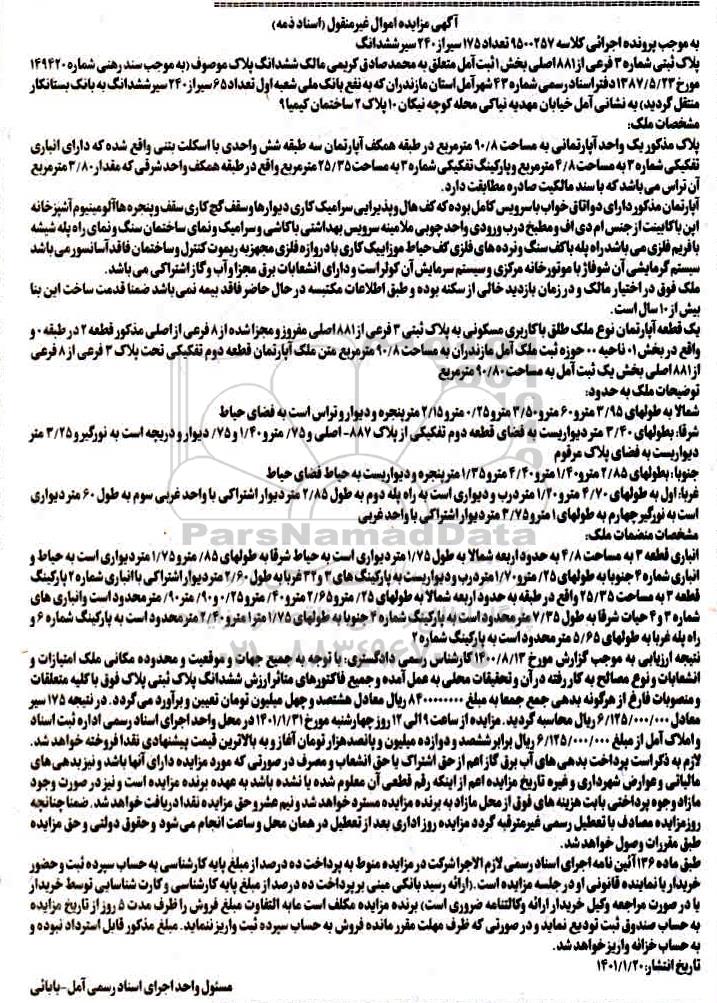 آگهی مزایده اموال غیرمنقول (اسناد ذمه)
به موجب پرونده اجرائی کلاسه ۹۵۰۰۲۵۷ تعداد ۱۷۵ سیر از ۲۴۰ سیر ششدانگ
پلاک ثبتی شماره ۳ فرعی از ۸۸۱ اصلی بخش ۱ ثبت آمل متعلق به محمدصادق کریمی مالک ششدانگ پلاک موصوف (به موجب سند رهنی شماره ۱۴۹۴۲۰
مورخ ۱۳۸۷/۵/۲۳ دفتر اسناد رسمی شماره ۴۳ شهر آمل استان مازندران که به نفع بانک ملی شعبه اول تعداد ۶۵ سیر از ۲۴۰ سیر ششدانگ به بانک بستانکار
منتقل گردید) به نشانی آمل خیابان مهدیه نیاکی محله کوچه نیکان ۱۰ پلاک ۲ ساختمان کیمیا ۹
مشخصات ملک:
پلاک مذکور یک واحد آپارتمانی به مساحت ۹۰/۸ مترمربع در طبقه همکف آپارتمان سه طبقه شش واحدی با اسکلت بتنی واقع شده که دارای انباری
تفکیکی شماره ۳ به مساحت ۴/۸ مترمربع و پارکینگ تفکیکی شماره ۳ به مساحت ۲۵/۳۵ مترمربع واقع در طبقه همکف واحد شرقی که مقدار ۳/۸۰ مترمربع
آن تراس می باشد که با سند مالکیت صادره مطابقت دارد.
آپارتمان مذکور دارای دو اتاق خواب با سرویس کامل بوده که کف هال و پذیرایی سرامیک کاری دیوارها و سقف گچ کاری سقف و پنجره ها آلومینیوم آشپزخانه
اپن با کابینت از جنس ام دی اف و مطبخ درب ورودی واحد چوبی ملامینه سرویس بهداشتی با کاشی و سرامیک و نمای ساختمان سنگ و نمای راه پله شیشه
با فریم فلزی می باشد راه پله با کف سنگ و نرده های فلزی کف حیاط موزاییک کاری با دروازه فلزی مجهز به ریموت کنترل و ساختمان فاقد آسانسور می باشد
سیستم گرمایشی آن شوفاژ با موتورخانه مرکزی و سیستم سرمایش آن کولر است و دارای انشعابات برق مجزا و آب و گاز اشتراکی می باشد.
ملک فوق در اختیار مالک و در زمان بازدید خالی از سکنه بوده و طبق اطلاعات مکتسبه در حال حاضر فاقد بیمه نمی باشد ضمنا قدمت ساخت این بنا
بیش از ۱۰ سال است.
یک قطعه آپارتمان نوع ملک طلق با کاربری مسکونی به پلاک ثبتی ۳ فرعی از ۸۸۱ اصلی مفروز و مجزا شده از ۸ فرعی از اصلی مذکور قطعه ۲ در طبقه ۰ و
واقع در بخش ۰۱ ناحیه ۰۰ حوزه ثبت ملک آمل مازندران به مساحت ۹۰/۸ مترمربع متن ملک آپارتمان قطعه دوم تفکیکی تحت پلاک ۳ فرعی از ۸ فرعی
از ۸۸۱ اصلی بخش یک ثبت آمل به مساحت ۹۰/۸۰ مترمربع
توضیحات ملک به حدود:
شمالا به طولهای ۳/۹۵ متر و ۶۰ متر و ۳/۵۰ متر و ۰/۲۵ متر و ۲/۱۵ متر پنجره و دیوار و تراس است به فضای حیاط
شرقا: بطولهای ۳/۴۰ متر دیواریست به فضای قطعه دوم تفکیکی از پلاک ۸۸۷- اصلی و ۷۵/ متر و ۱/۴۰ و ۷۵/ دیوار و دریچه است به نورگیر و ۳/۲۵ متر
دیواریست به فضای پلاک مرقوم
جنوبا: بطولهای ۲/۸۵ متر و ۱/۴۰ متر و ۴/۴۰ متر و ۱/۳۵ متر پنجره و دیواریست به حیاط فضای حیاط
غربا: اول به طولهای ۴/۷۰ متر و ۱/۲۰ متر درب و دیواری است به راه پله دوم به طول ۲/۸۵ متر دیوار اشتراکی با واحد غربی سوم به طول ۶۰ متر دیواری
است به نورگیر چهارم به طولهای ۱ متر و ۳/۷۵ متر دیوار اشتراکی با واحد غربی
مشخصات منضمات ملک:
انباری قطعه ۳ به مساحت ۴/۸ به حدود اربعه شمالا به طول ۱/۷۵ متر دیواری است به حیاط شرقا به طولهای ۸۵/ متر و ۱/۷۵ متر دیواری است به حیاط و
انباری شماره ۴ جنوبا به طولهای ۲۵/ متر و ۱/۷۰ متر درب و دیواریست به پارکینگ های ۳ و ۳۲ غربا به طول ۲/۶۰ متر دیوار اشتراکی با انباری شماره ۲ پارکینگ
قطعه ۳ به مساحت ۲۵/۳۵ واقع در طبقه به حدود اربعه شمالا به طولهای ۲۵/ متر و ۲/۶۵ متر و ۴۰/ متر و ۰/۲۵ و ۹۰/ متر ۹۰/ متر محدود است و انباری های
شماره ۳ و ۴ حیات شرقا به طول ۷/۳۵ متر محدود است به پارکینگ شماره ۴ جنوبا به طولهای ۱/۷۵ متر ۱ متر و ۲/۴۰ متر محدود است به پارکینگ شماره ۶ و
راه پله غربا به طولهای ۵/۶۵ متر محدود است به پارکینگ شماره ۲
نتیجه ارزیابی به موجب گزارش مورخ ۱۴۰۰/۸/۱۳ کارشناس رسمی دادگستری: با توجه به جمیع جهات و موقعیت و محدوده مکانی ملک امتیازات و
انشعابات و نوع مصالح به کار رفته در آن و تحقیقات محلی به عمل آمده و جمیع فاکتورهای متاثر ارزش ششدانگ پلاک ثبتی پلاک فوق با کلیه متعلقات
و منصوبات فارغ از هرگونه بدهی جمع جمعا به مبلغ ۸۴۰۰۰۰۰۰۰۰ ریال معادل هشتصد و چهل میلیون تومان تعیین و برآورد می گردد. در نتیجه ۱۷۵ سیر
معادل ۶/۱۲۵/۰۰۰/۰۰۰ ریال محاسبه گردید. مزایده از ساعت ۹ الی ۱۲ روز چهارشنبه مورخ ۱۴۰۱/۱/۳۱ در محل واحد اجرای اسناد رسمی اداره ثبت اسناد
و املاک آمل از مبلغ ۶/۱۲۵/۰۰۰/۰۰۰ ریال برابر ششصد و دوازده میلیون و پانصدهزار تومان آغاز و به بالاترین قیمت پیشنهادی نقدا فروخته خواهد شد.
لازم به ذکر است پرداخت بدهی های آب برق گاز اعم از حق اشتراک یا حق انشعاب و مصرف در صورتی که مورد مزایده دارای آنها باشد و نیز بدهی های
مالیاتی و عوارض شهرداری و غیره تاریخ مزایده اعم از اینکه رقم قطعی آن معلوم شده یا نشده باشد به عهده برنده مزایده است و نیز در صورت وجود
مازاد وجوه پرداختی بابت هزینه های فوق از محل مازاد به برنده مزایده مسترد خواهد شد و نیم عشر و حق مزایده نقدا دریافت خواهد شد. ضمنا چنانچه
روز مزایده مصادف با تعطیل رسمی غیرمترقبه گردد مزایده روز اداری بعد از تعطیل در همان محل و ساعت انجام می شود و حقوق دولتی و حق مزایده
طبق مقررات وصول خواهد شد.
طبق ماده ۱۳۶ آئین نامه اجرای اسناد رسمی لازم الاجرا شرکت در مزایده منوط به پرداخت ده درصد از مبلغ پایه کارشناسی به حساب سپرده ثبت و حضور
خریدار یا نماینده قانونی او در جلسه مزایده است. (ارائه رسید بانکی مبنی بر پرداخت ده درصد از مبلغ پایه کارشناسی و کارت شناسایی توسط خریدار
یا در صورت مراجعه وکیل خریدار ارائه وکالتنامه ضروری است) برنده مزایده مکلف است مابه التفاوت مبلغ فروش را ظرف مدت ۵ روز از تاریخ مزایده
به حساب صندوق ثبت تودیع نماید و در صورتی که ظرف مهلت مقرر مانده فروش به حساب سپرده ثبت واریز ننماید. مبلغ مذکور قابل استرداد نبوده و
به حساب خزانه واریز خواهد شد.
تاریخ انتشار: ۱۴۰۱/۱/۲۰
مسئول واحد اجرای اسناد رسمی آمل-بابائی
ParsNamadData